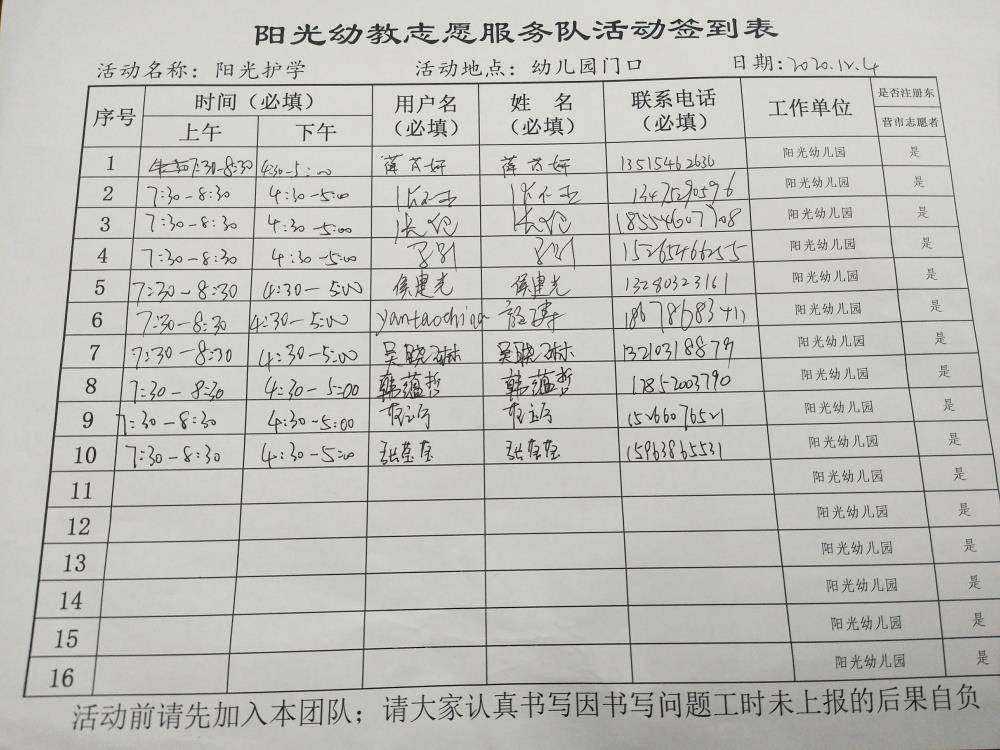 阳光幼教志愿服务队活动签到表
活动名称：阳光护学 活动地点：幼儿园门口 日期：2020.12.4
序号 时间（必填） 用户名（必填） 姓 名（必填） 联系电话（必填） 工作单位 是否注册东营市志愿者
上午 下午
1 7:30-8:30 4:30-5:00 薛芮妍 薛芮妍 13515462636 阳光幼儿园 是
2 7:30-8:30 4:30-5:00 13475290596 阳光幼儿园 是
3 7:30-8:30 4:30-5:00 18554607708 阳光幼儿园 是
4 7:30-8:30 4:30-5:00 15265466255 阳光幼儿园 是
5 7:30-8:30 4:30-5:00 侯建光 侯建光 13280323161 阳光幼儿园 是
6 7:30-8:30 4:30-5:00 yantaochina 阳光幼儿园 是
7 7:30-8:30 4:30-5:00 吴晓琳 吴晓琳 13210318879 阳光幼儿园 是
8 7:30-8:30 4:30-5:00 韩蕴哲 韩蕴哲 17852003790 阳光幼儿园 是
9 7:30-8:30 4:30-5:00 15266076521 阳光幼儿园 是
10 7:30-8:30 4:30-5:00 张莹莹 张莹莹 15963865531 阳光幼儿园 是
11 阳光幼儿园 是
12 阳光幼儿园 是
13 阳光幼儿园 是
14 阳光幼儿园 是
15 阳光幼儿园 是
16 阳光幼儿园 是
活动前请先加入本团队；请大家认真书写因书写问题工时未上报的后果自负